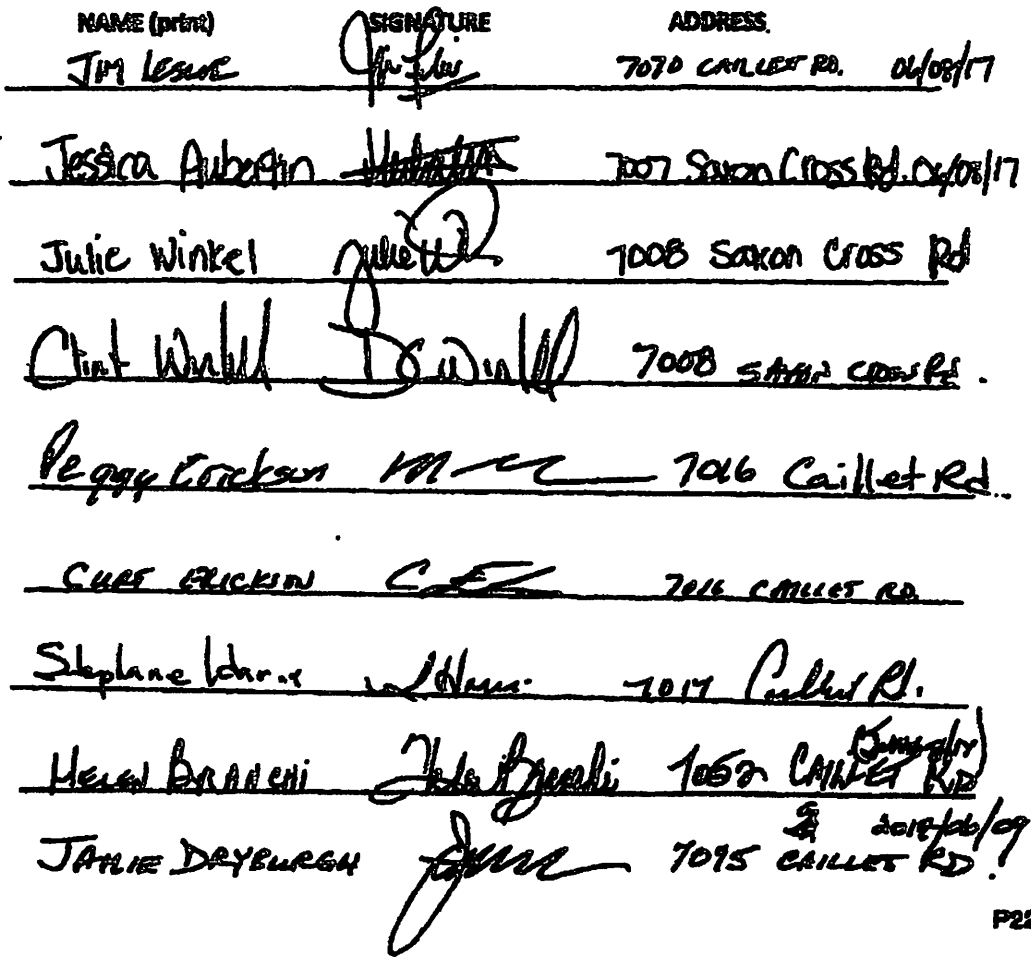 NAME (print) SIGNATURE ADDRESS.
JIM LESLIE 7070 CAILLET RD. 06/08/17
Jessica Aubertin 7007 Saxon Cross Rd. 06/08/17
Julie Winkel Julie W 7008 Saxon Cross Rd
Clint Winkel C Winkel 7008 SAXON CROSS Rd.
Peggy Erickson 7016 Caillet Rd.
CURT ERICKSON C E 7016 CAILLET RD.
Stephane 7017 Caillet Rd.
HELEN BRANCHI Helen Branchi 7052 CAILLET RD
2017/06/09
JAMIE DRYBURGH 7095 CAILLET RD.
P22